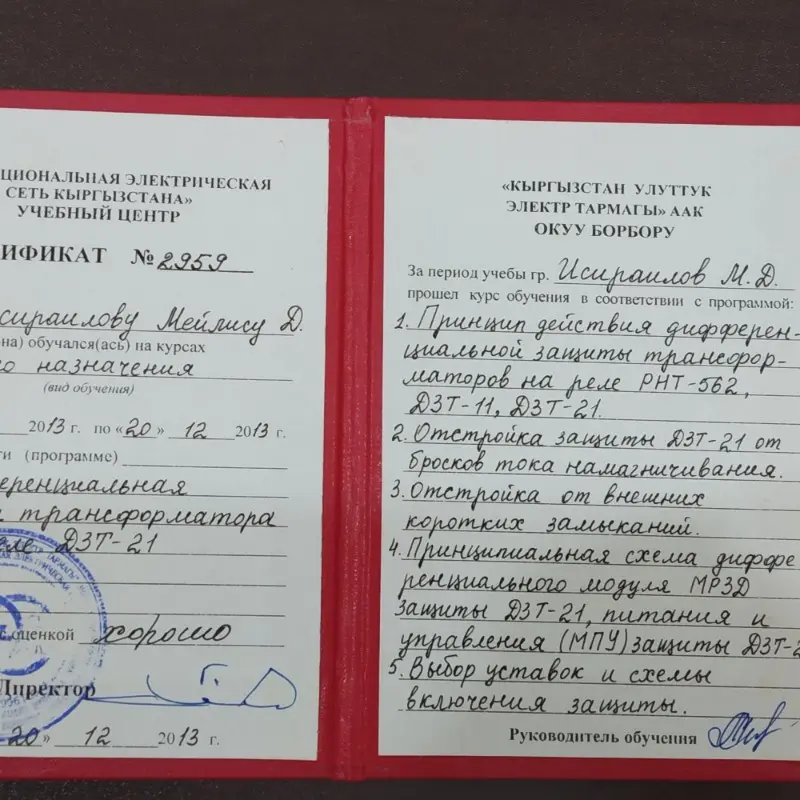 ЦИОНАЛЬНАЯ ЭЛЕКТРИЧЕСКАЯ
СЕТЬ КЫРГЫЗСТАНА»
УЧЕБНЫЙ ЦЕНТР
ИФИКАТ №2959
сираилову Мейлису Д.
на) обучался(ась) на курсах
го назначения
(вид обучения)
2013 г. по «20» 12 2013 г.
ти (программе)
ренциальная
трансформатора
ДЗТ-21
с оценкой хорошо
Директор
20» 12 2013 г.
«КЫРГЫЗСТАН УЛУТТУК
ЭЛЕКТР ТАРМАГЫ» ААК
ОКУУ БОРБОРУ
За период учебы гр. Исираилов М.Д.
прошел курс обучения в соответствии с программой:
1. Принцип действия дифферен-
циальной защиты трансфор-
маторов на реле РНТ-562,
ДЗТ-11, ДЗТ-21.
2. Отстройка защиты ДЗТ-21 от
бросков тока намагничивания.
3. Отстройка от внешних
коротких замыканий.
4. Принципиальная схема диффе
ренциального модуля МРЗД
защиты ДЗТ-21, питания и
управления (МПУ) защиты ДЗТ-2
5. Выбор уставок и схемы
включения защиты.
Руководитель обучения